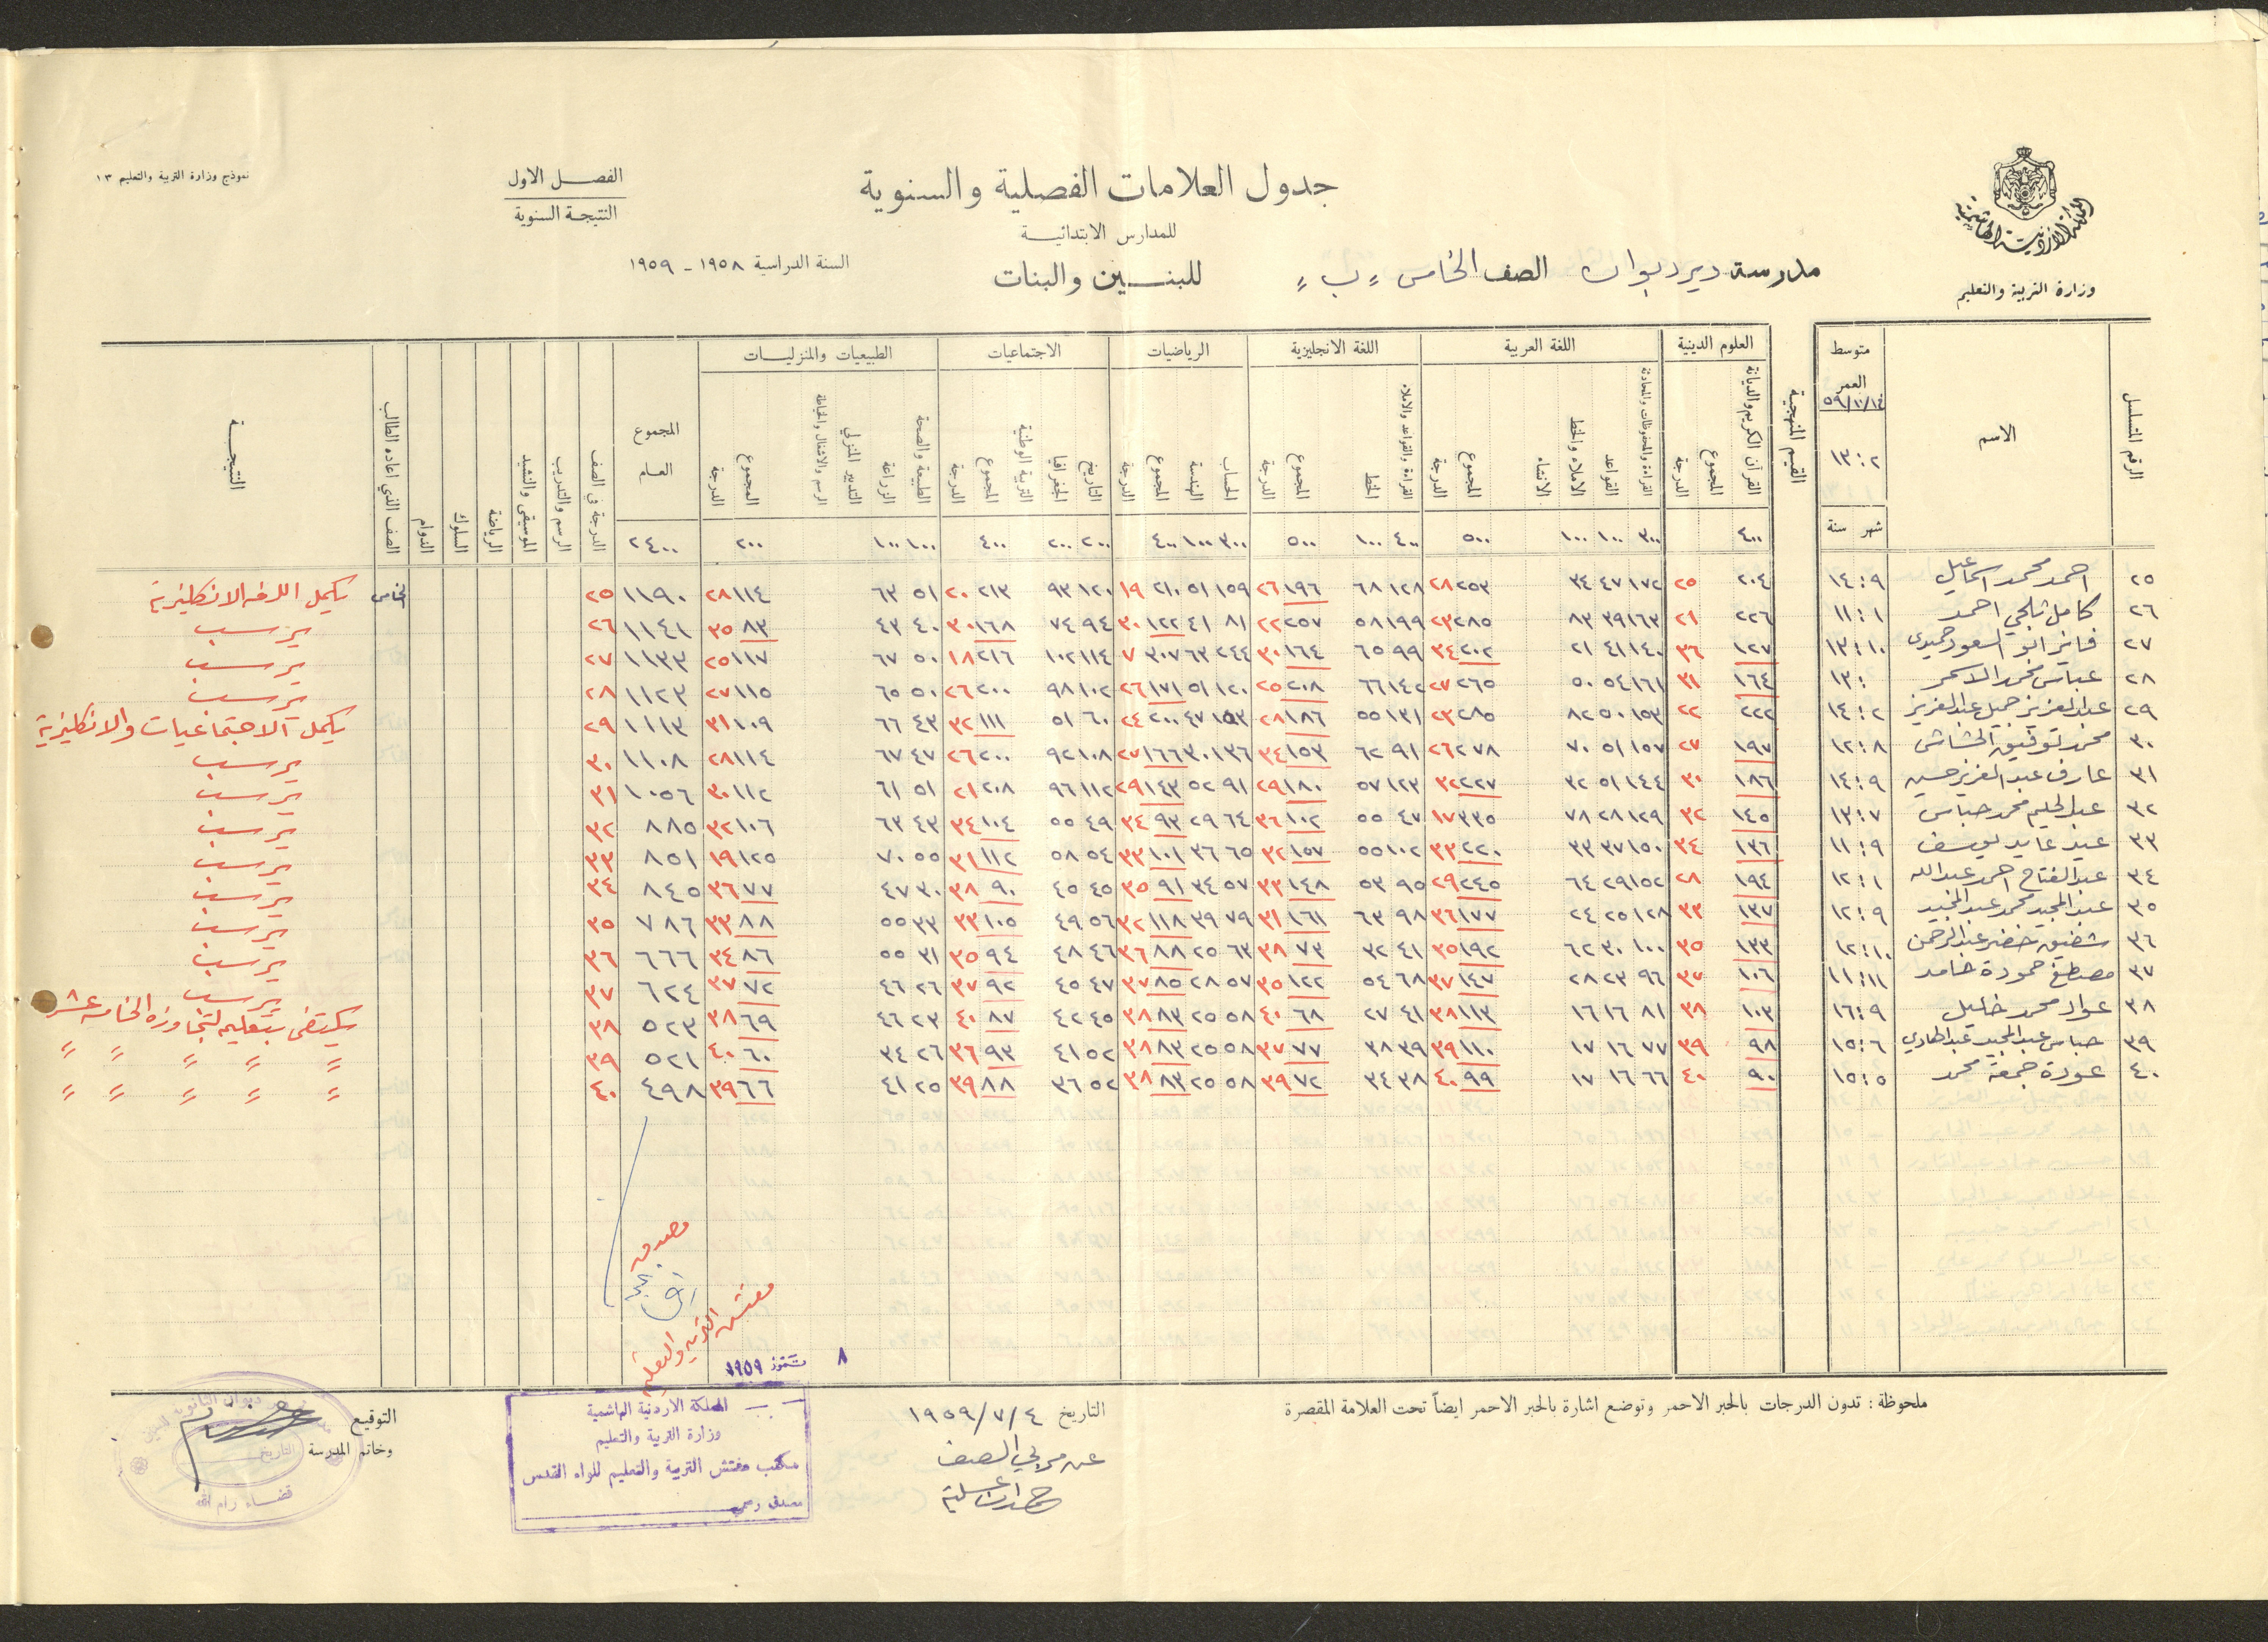 نموذج وزارة التربية والتعليم ١٣
الفصل الاول
النتيجة السنوية
جدول العلامات الفصلية والسنوية
للمدارس الابتدائية
للبنين والبنات
السنة الدراسية ١٩٥٨ - ١٩٥٩
المملكة الاردنية الهاشمية
وزارة التربية والتعليم
مدرسة ديردبوان الصف الخامس "ب"
الرقم المتسلسل | الاسم | متوسط العمر ٥٩/١٠/١٤ ١٣:٢ شهر سنة | القيم المنهجية | العلوم الدينية | اللغة العربية | اللغة الانجليزية | الرياضيات | الاجتماعيات | الطبيعيات والمنزليات | المجموع العام | الدرجة في الصف | الرسم والتدريب | الموسيقى والنشيد | الرياضة | السلوك | الدوام | الصف الذي اعاده الطالب | النتيجة
القرآن الكريم والديانة | المجموع | الدرجة | القراءة والمحفوظات والمحادثة | القواعد | الاملاء والخط | الانشاء | المجموع | الدرجة | القراءة والقواعد والاملاء | الخط | المجموع | الدرجة | الحساب | الهندسة | المجموع | الدرجة | التاريخ | الجغرافيا | التربية الوطنية | المجموع | الدرجة | الطبيعة والصحة | الزراعة | التدبير المنزلي | الرسم والاشغال والخياطة | المجموع | الدرجة
٤٠٠ | ٣٠٠ | ١٠٠ | ١٠٠ | ٥٠٠ | ٤٠٠ | ١٠٠ | ٥٠٠ | ٣٠٠ | ١٠٠ | ٤٠٠ | ٢٠٠ | ٢٠٠ | ٤٠٠ | ١٠٠ | ١٠٠ | ٢٠٠ | ٢٤٠٠
٢٥ احمد محمد اسماعيل ١٤:٩ ٢٠٤ ٢٥ ١٧٢ ٤٧ ٣٤ ٢٥٣ ٢٨ ١٢٨ ٦٨ ١٩٦ ٢٦ ١٥٩ ٥١ ٢١٠ ١٩ ١٢٠ ٩٣ ٢١٣ ٢٠ ٥١ ٦٣ ١١٤ ٢٨ ١١٩٠ ٢٥ الخامس يكمل اللغه الانكليزية
٢٦ كامل ثلجي احمد ١١:١ ٢٢٦ ٢١ ١٦٣ ٣٩ ٨٣ ٢٨٥ ٢٣ ١٩٩ ٥٨ ٢٥٧ ٢٢ ٨١ ٤١ ١٢٢ ٣٠ ٩٤ ٧٤ ١٦٨ ٣٠ ٤٠ ٤٣ ٨٣ ٣٥ ١١٤١ ٢٦ يرسب
٢٧ فايز ابو السعود حميدي ١٣:١٠ ١٢٧ ٣٦ ١٤٠ ٤١ ٢١ ٢٠٢ ٣٤ ٩٩ ٦٥ ١٦٤ ٣٠ ٢٤٤ ٦٣ ٣٠٧ ٧ ١١٤ ١٠٢ ٢١٦ ١٨ ٥٠ ٦٧ ١١٧ ٢٥ ١١٣٣ ٢٧ يرسب
٢٨ عباس محمد الاسمر ١٣: ١٦٤ ٣١ ١٦١ ٥٤ ٥٠ ٢٦٥ ٢٧ ١٤٢ ٦٦ ٢٠٨ ٢٥ ١٢٠ ٥١ ١٧١ ٢٦ ١٠٢ ٩٨ ٢٠٠ ٢٦ ٥٠ ٦٥ ١١٥ ٢٧ ١١٢٣ ٢٨ يرسب
٢٩ عبدالعزيز جميل عبدالعزيز ١٤:٢ ٢٢٢ ٢٢ ١٥٣ ٥٠ ٨٢ ٢٨٥ ٢٣ ١٣١ ٥٥ ١٨٦ ٢٨ ١٥٣ ٤٧ ٢٠٠ ٢٤ ٦٠ ٥١ ١١١ ٣٢ ٤٣ ٦٦ ١٠٩ ٣١ ١١١٣ ٢٩ يكمل الاجتماعيات والانكليزية
٣٠ محمد توفيق ١٢:٨ ١٩٧ ٢٧ ١٥٧ ٥١ ٧٠ ٢٧٨ ٢٦ ٩١ ٦٢ ١٥٣ ٣٤ ١٣٦ ٣٠ ١٦٦ ٢٧ ١٠٨ ٩٢ ٢٠٠ ٢٦ ٤٧ ٦٧ ١١٤ ٢٨ ١١٠٨ ٣٠ يرسب
٣١ عارف عبد العزيز حسين ١٤:٩ ١٨٦ ٣٠ ١٤٤ ٥١ ٣٢ ٢٢٧ ٣٢ ١٢٣ ٥٧ ١٨٠ ٢٩ ٩١ ٥٢ ١٤٣ ٢٩ ١١٢ ٩٦ ٢٠٨ ٢١ ٥١ ٦١ ١١٢ ٣٠ ١٠٥٦ ٣١ يرسب
٣٢ عبدالحليم محمد حباس ١٣:٧ ١٤٥ ٣٢ ١٢٩ ٢٨ ٧٨ ٣٣٥ ١٧ ٤٧ ٥٥ ١٠٢ ٣٦ ٦٤ ٢٩ ٩٣ ٣٤ ٤٩ ٥٥ ١٠٤ ٣٤ ٤٣ ٦٣ ١٠٦ ٣٢ ٨٨٥ ٣٢ يرسب
٣٣ عيد عايد يوسف ١١:٩ ١٣٦ ٣٤ ١٥٠ ٣٧ ٣٣ ٢٢٠ ٣٣ ١٠٢ ٥٥ ١٥٧ ٣٢ ٦٥ ٣٦ ١٠١ ٣٣ ٥٤ ٥٨ ١١٢ ٣١ ٥٥ ٧٠ ١٢٥ ١٩ ٨٥١ ٣٣ يرسب
٣٤ عبدالفتاح احمد عبدالله ١٢:١ ١٩٤ ٢٨ ١٥٢ ٢٩ ٦٤ ٢٤٥ ٢٩ ٩٥ ٥٣ ١٤٨ ٣٣ ٥٧ ٣٤ ٩١ ٣٥ ٤٥ ٤٥ ٩٠ ٣٨ ٣٠ ٤٧ ٧٧ ٣٦ ٨٤٥ ٣٤ يرسب
٣٥ عبدالمجيد محمد عبدالمجيد ١٢:٩ ١٣٧ ٣٣ ١٢٨ ٢٥ ٢٤ ١٧٧ ٣٦ ٩٨ ٦٣ ١٦١ ٣١ ٧٩ ٣٩ ١١٨ ٣٢ ٥٦ ٤٩ ١٠٥ ٣٣ ٣٣ ٥٥ ٨٨ ٣٣ ٧٨٦ ٣٥ يرسب
٣٦ شفيق خضر عبدالرحمن ١٢:١٠ ١٣٣ ٣٥ ١٠٠ ٣٠ ٦٢ ١٩٢ ٣٥ ٤١ ٣٢ ٧٣ ٣٨ ٦٣ ٢٥ ٨٨ ٣٦ ٤٦ ٤٨ ٩٤ ٣٥ ٣١ ٥٥ ٨٦ ٣٤ ٦٦٦ ٣٦ يرسب
٣٧ مصطفى حمودة حامد ١١:١١ ١٠٦ ٣٧ ٩٦ ٢٣ ٢٨ ١٤٧ ٣٧ ٦٨ ٥٤ ١٢٢ ٣٥ ٥٧ ٢٨ ٨٥ ٣٧ ٤٧ ٤٥ ٩٢ ٣٧ ٢٦ ٤٦ ٧٢ ٣٧ ٦٢٤ ٣٧ يرسب
٣٨ عواد محمد خليل ١٦:٩ ١٠٣ ٣٨ ٨١ ١٦ ١٦ ١١٣ ٣٨ ٤١ ٢٧ ٦٨ ٤٠ ٥٨ ٢٥ ٨٣ ٣٨ ٤٥ ٤٢ ٨٧ ٤٠ ٢٣ ٤٦ ٦٩ ٣٨ ٥٢٣ ٣٨ يكتفى بتعليمه لتجاوزه الخامسة عشر
٣٩ حباس عبدالمجيد عبدالهادي ١٥:٦ ٩٨ ٣٩ ٧٧ ١٦ ١٧ ١١٠ ٣٩ ٣٩ ٣٨ ٧٧ ٣٧ ٥٨ ٢٥ ٨٣ ٣٨ ٥٢ ٤١ ٩٣ ٣٦ ٢٦ ٣٤ ٦٠ ٤٠ ٥٢١ ٣٩ " " " " "
٤٠ عودة جمعة محمد ١٥:٥ ٩٠ ٤٠ ٦٦ ١٦ ١٧ ٩٩ ٤٠ ٣٨ ٣٤ ٧٢ ٣٩ ٥٨ ٢٥ ٨٣ ٣٨ ٥٢ ٣٦ ٨٨ ٣٩ ٢٥ ٤١ ٦٦ ٣٩ ٤٩٨ ٤٠ " " " " "
مصدق
مفتش التربيه والتعليم
٨ تموز ١٩٥٩
ملحوظة : تدون الدرجات بالحبر الاحمر وتوضع اشارة بالحبر الاحمر ايضاً تحت العلامة المقصرة
التاريخ ٤/٧/١٩٥٩
عن مربي الصف
المملكة الاردنية الهاشمية
وزارة التربية والتعليم
مكتب مفتش التربية والتعليم للواء القدس
مصدق رسمي
التوقيع
وخاتم المدرسة
التاريخ
قضاء رام الله